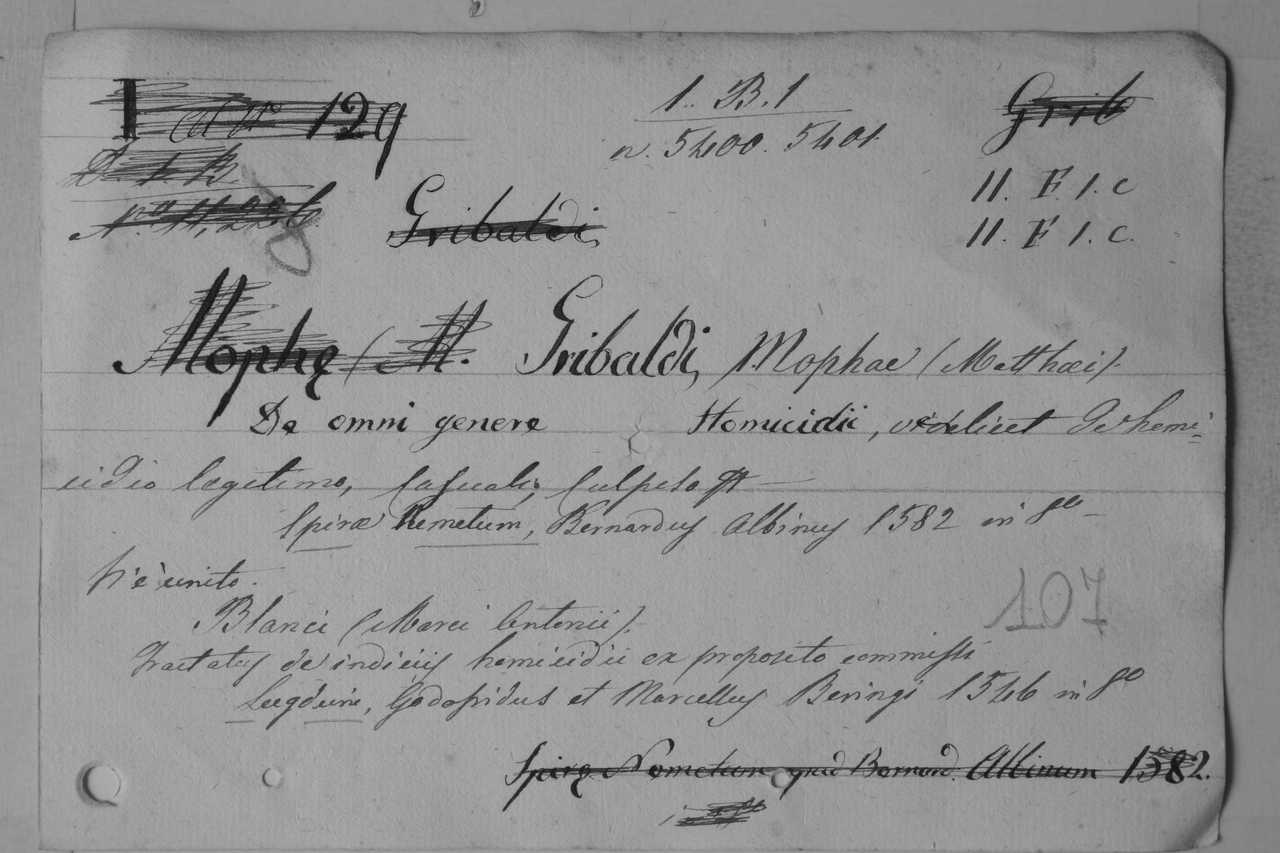 I 129
1. B. 1
Grib
n. 5400. 5401
D 1. B
II. F. 1. c
Gribaldi
II. F. 1. c.
Mophę (M. Gribaldi, Mophae (Matthæi).
De omni genere Homicidii, videlicet de homi=
cidio legitimo, Casuali, Culposo
Spiræ Nemetum, Bernardus Albinus 1582 in 8º
Vi è unito.
107
Blanci (Marci Antonii).
Tractatus de indiciis homicidii ex proposito commissi
Lugduni, Godofridus et Marcellus Beringi 1546 in 8º
Spirę Nemetum apud Bernard. Albinum 1582.